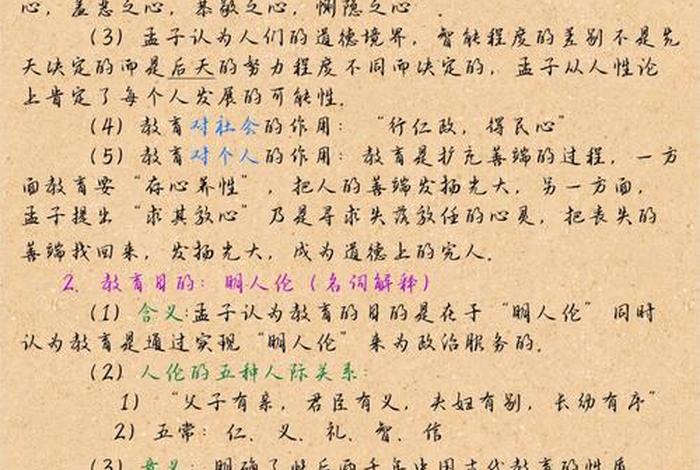 心，羞恶之心，恭敬之心，恻隐之心”.
(3) 孟子认为人们的道德境界，智能程度的差别不是先
天决定的而是后天的努力程度不同而决定的，孟子从人性论
上肯定了每个人发展的可能性.
(4) 教育对社会的作用：“行仁政，得民心”
(5) 教育对个人的作用：教育是扩充善端的过程，一方
面教育要“存心养性”，把人的善端发扬光大，另一方面，
孟子提出“求其放心”乃是寻求失落放任的心灵，把丧失的
善端找回来，发扬光大，成为道德上的完人.
2. 教育目的：明人伦（名词解释）
(1) 含义:孟子认为教育的目的是在于“明人伦”同时
认为教育是通过实现“明人伦”来为政治服务的.
(2) 人伦的五种人际关系：
1) “父子有亲，君臣有义，夫妇有别，长幼有序”
2) 五常：仁、义、礼、智、信
(3) 意义：明确了此后两千年中国古代教育的性质